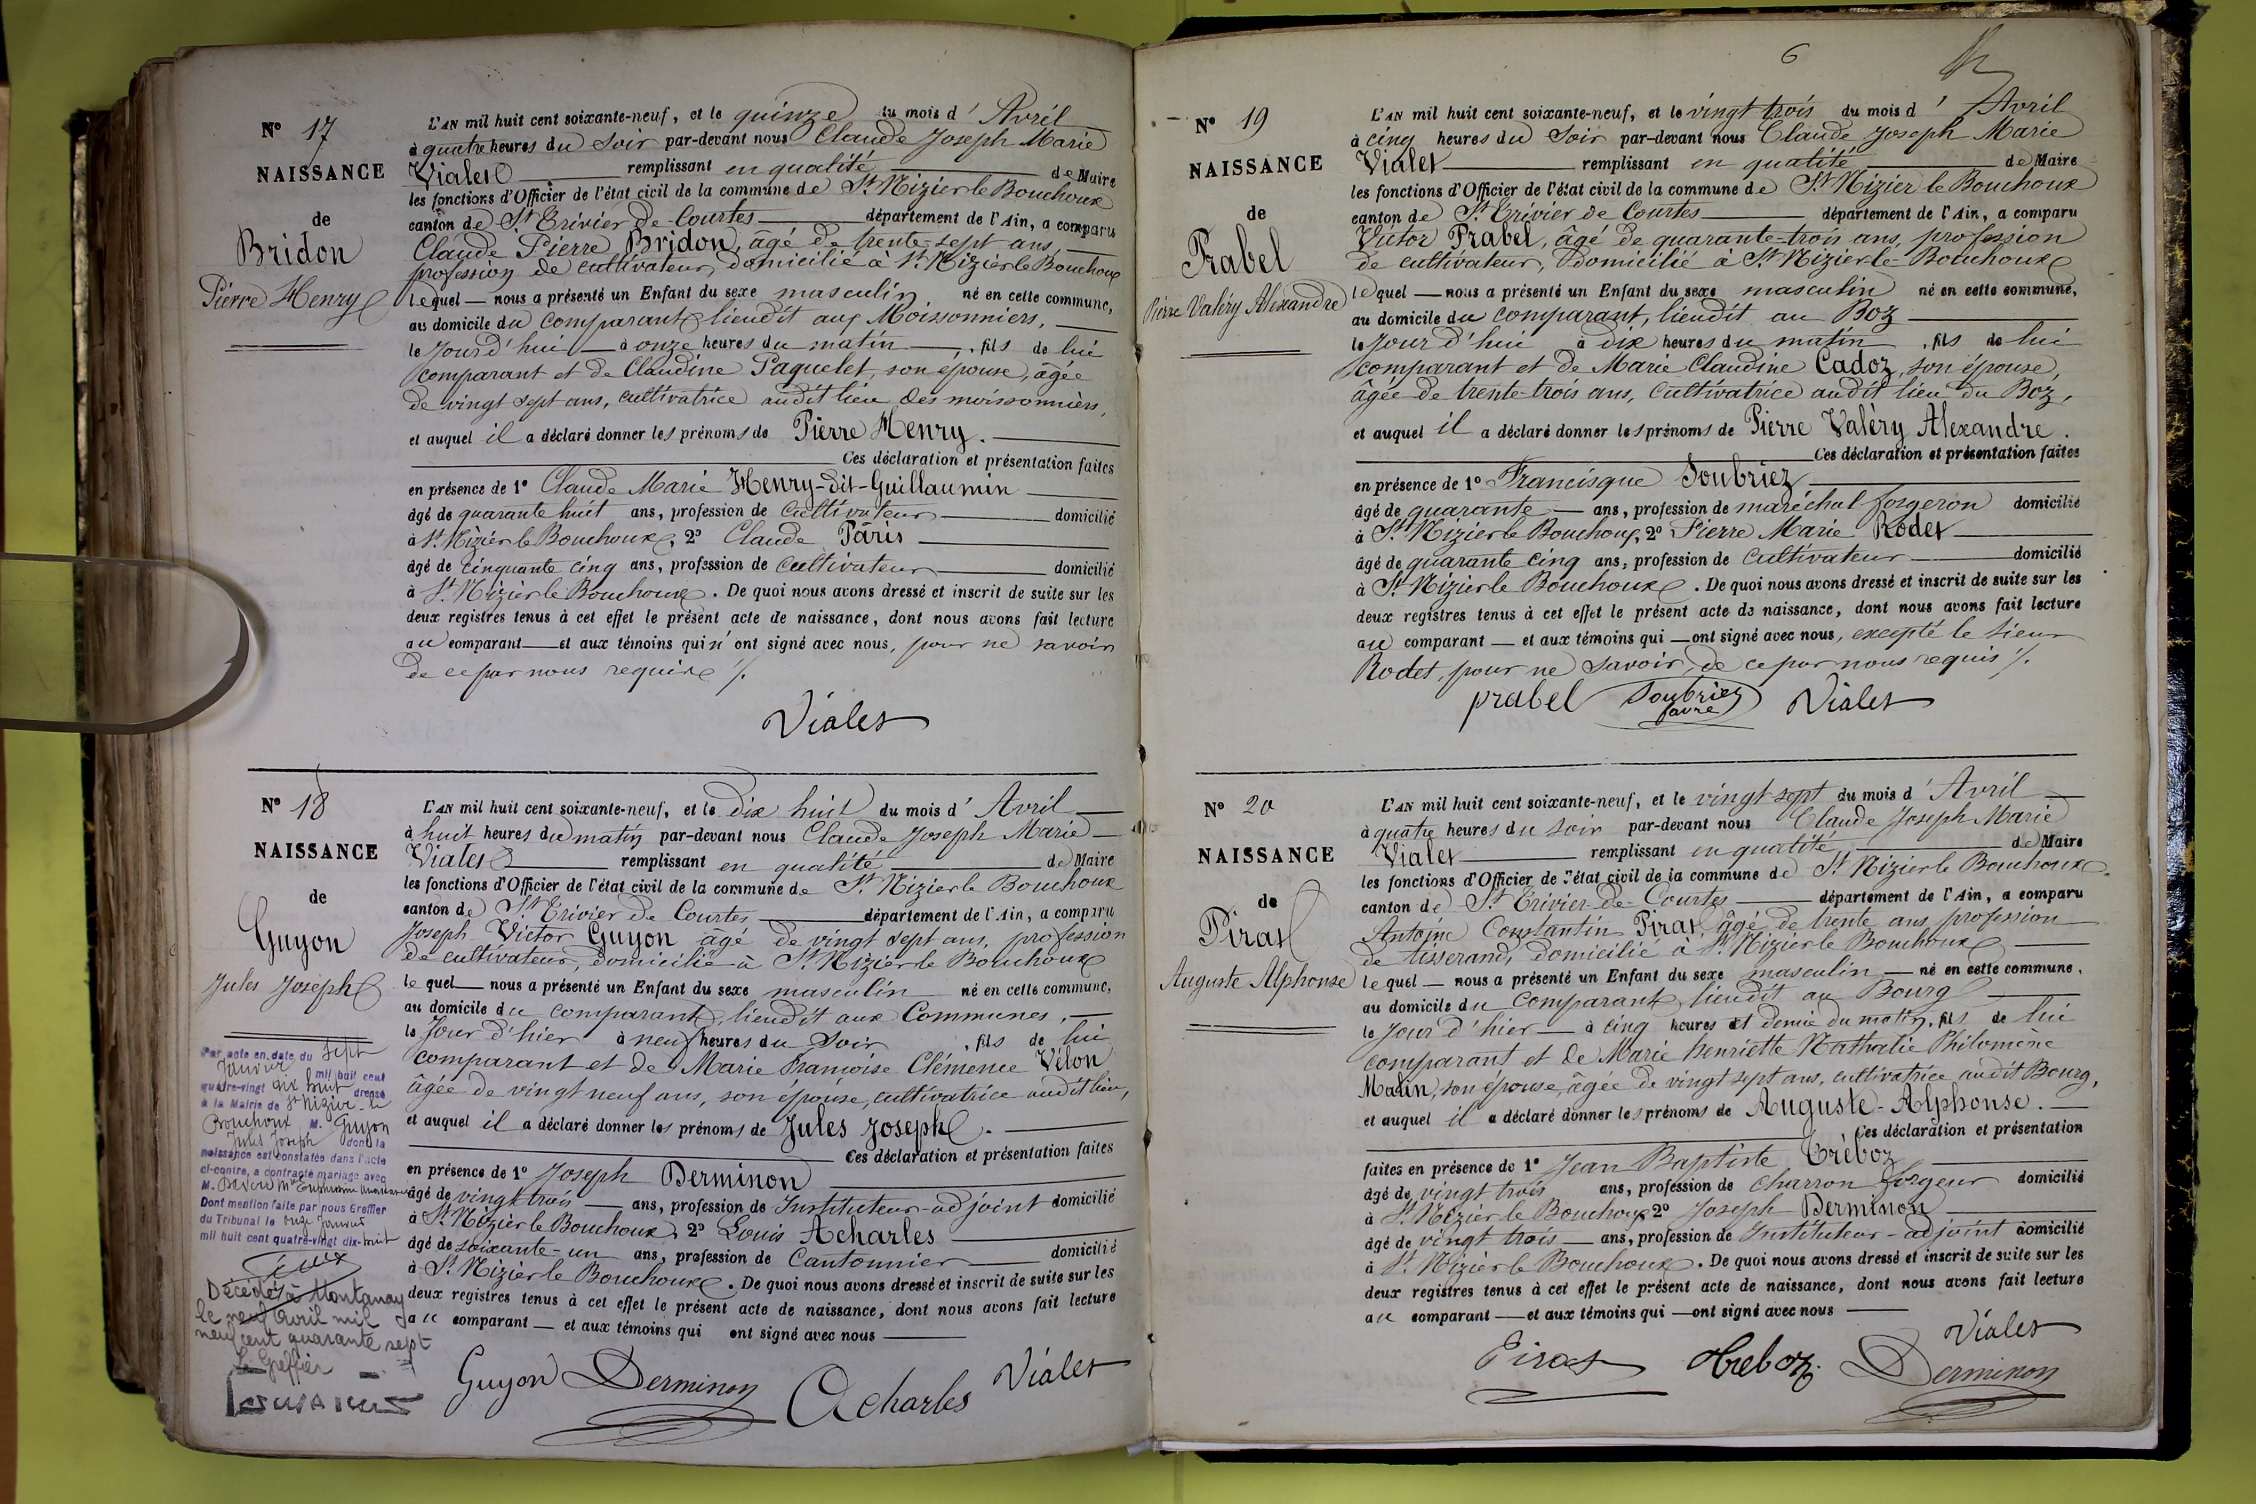 Nº 17
NAISSANCE
de
Bridon
Pierre Henry
L'AN mil huit cent soixante-neuf, et le quinze du mois d' Avril
à quatre heures du soir par-devant nous Claude Joseph Marie
Vialet remplissant en qualité de Maire
les fonctions d'Officier de l'état civil de la commune de St Nizier le Bouchoux
canton de St Trivier de Courtes département de l'Ain, a comparu
Claude Pierre Bridon, âgé de trente-sept ans,
profession de cultivateur, domicilié à St Nizier le Bouchoux
lequel nous a présenté un Enfant du sexe masculin, né en cette commune,
au domicile du comparant, lieudit aux Moissonniers,
le Jour d'hui à onze heures du matin, fils de lui
comparant et de Claudine Paquelet, son épouse, âgée
de vingt sept ans, cultivatrice audit lieu des moissonniers,
et auquel il a déclaré donner les prénoms de Pierre Henry.
Ces déclaration et présentation faites
en présence de 1º Claude Marie Henry-dit-Guillaumin
âgé de quarante huit ans, profession de cultivateur domicilié
à St Nizier le Bouchoux, 2º Claude Pâris
âgé de cinquante cinq ans, profession de cultivateur domicilié
à St Nizier le Bouchoux. De quoi nous avons dressé et inscrit de suite sur les
deux registres tenus à cet effet le présent acte de naissance, dont nous avons fait lecture
au comparant et aux témoins qui n'ont signé avec nous, pour ne savoir
de ce par nous requis ./.
Vialet
Nº 18
NAISSANCE
de
Guyon
Jules Joseph
Par acte en date du sept
Janvier mil huit cent
quatre-vingt dix huit dressé
à la Mairie de St Nizier-le
Bouchoux M. Guyon
Jules Joseph dont la
naissance est constatée dans l'acte
ci-contre, a contracté mariage avec
M.
Dont mention faite par nous Greffier
du Tribunal le onze Janvier
mil huit cent quatre-vingt dix-huit
Décédé à Montanay
le neuf avril mil
neuf cent quarante sept
Le Greffier
L'AN mil huit cent soixante-neuf, et le dix huit du mois d' Avril
à huit heures du matin par-devant nous Claude Joseph Marie
Vialet remplissant en qualité de Maire
les fonctions d'Officier de l'état civil de la commune de St Nizier le Bouchoux
canton de St Trivier de Courtes département de l'Ain, a comparu
Joseph Victor Guyon âgé de vingt sept ans, profession
de cultivateur, domicilié à St Nizier le Bouchoux
lequel nous a présenté un Enfant du sexe masculin né en cette commune,
au domicile du comparant, lieudit aux Communes,
le Jour d'hier à neuf heures du soir, fils de lui
comparant et de Marie Françoise Clémence Vélon
âgée de vingt neuf ans, son épouse, cultivatrice audit lieu,
et auquel il a déclaré donner les prénoms de Jules Joseph.
Ces déclaration et présentation faites
en présence de 1º Joseph Derminon
âgé de vingt trois ans, profession de Instituteur-adjoint domicilié
à St Nizier le Bouchoux, 2º Louis Acharles
âgé de soixante-un ans, profession de Cantonnier domicilié
à St Nizier le Bouchoux. De quoi nous avons dressé et inscrit de suite sur les
deux registres tenus à cet effet le présent acte de naissance, dont nous avons fait lecture
au comparant et aux témoins qui ont signé avec nous
Guyon Derminon Acharles Vialet
6
Nº 19
NAISSANCE
de
Prabel
Pierre Valéry Alexandre
L'AN mil huit cent soixante-neuf, et le vingt trois du mois d' Avril
à cinq heures du soir par-devant nous Claude Joseph Marie
Vialet remplissant en qualité de Maire
les fonctions d'Officier de l'état civil de la commune de St Nizier le Bouchoux
canton de St Trivier de Courtes département de l'Ain, a comparu
Victor Prabel, âgé de quarante-trois ans, profession
de cultivateur, domicilié à St Nizier le Bouchoux
lequel nous a présenté un Enfant du sexe masculin né en cette commune,
au domicile du comparant, lieudit au Boz
le Jour d'hui à dix heures du matin, fils de lui
comparant et de Marie Claudine Cadoz, son épouse,
âgée de trente-trois ans, cultivatrice audit lieu du Boz,
et auquel il a déclaré donner les prénoms de Pierre Valéry Alexandre.
Ces déclaration et présentation faites
en présence de 1º Francisque Soubriez
âgé de quarante ans, profession de maréchal forgeron domicilié
à St Nizier le Bouchoux, 2º Pierre Marie Rodet
âgé de quarante cinq ans, profession de cultivateur domicilié
à St Nizier le Bouchoux. De quoi nous avons dressé et inscrit de suite sur les
deux registres tenus à cet effet le présent acte de naissance, dont nous avons fait lecture
au comparant et aux témoins qui ont signé avec nous, excepté le sieur
Rodet, pour ne savoir, de ce par nous requis ./.
prabel Soubriez favre Vialet
Nº 20
NAISSANCE
de
Pirat
Auguste Alphonse
L'AN mil huit cent soixante-neuf, et le vingt sept du mois d' Avril
à quatre heures du soir par-devant nous Claude Joseph Marie
Vialet remplissant en qualité de Maire
les fonctions d'Officier de l'état civil de la commune de St Nizier le Bouchoux
canton de St Trivier-de-Courtes département de l'Ain, a comparu
Antoine Constantin Pirat, âgé de trente ans, profession
de tisserand, domicilié à St Nizier le Bouchoux
lequel nous a présenté un Enfant du sexe masculin né en cette commune,
au domicile du comparant, lieudit au Bourg
le Jour d'hier à cinq heures et demie du matin, fils de lui
comparant et de Marie henriette Nathalie Philomène
Matin, son épouse, âgée de vingt sept ans, cultivatrice audit Bourg,
et auquel il a déclaré donner les prénoms de Auguste-Alphonse.
Ces déclaration et présentation
faites en présence de 1º Jean Baptiste Tréboz
âgé de vingt trois ans, profession de charron forgeur domicilié
à St Nizier le Bouchoux 2º Joseph Derminon
âgé de vingt trois ans, profession de Instituteur-adjoint domicilié
à St Nizier le Bouchoux. De quoi nous avons dressé et inscrit de suite sur les
deux registres tenus à cet effet le présent acte de naissance, dont nous avons fait lecture
au comparant et aux témoins qui ont signé avec nous
Pirat Treboz Derminon Vialet